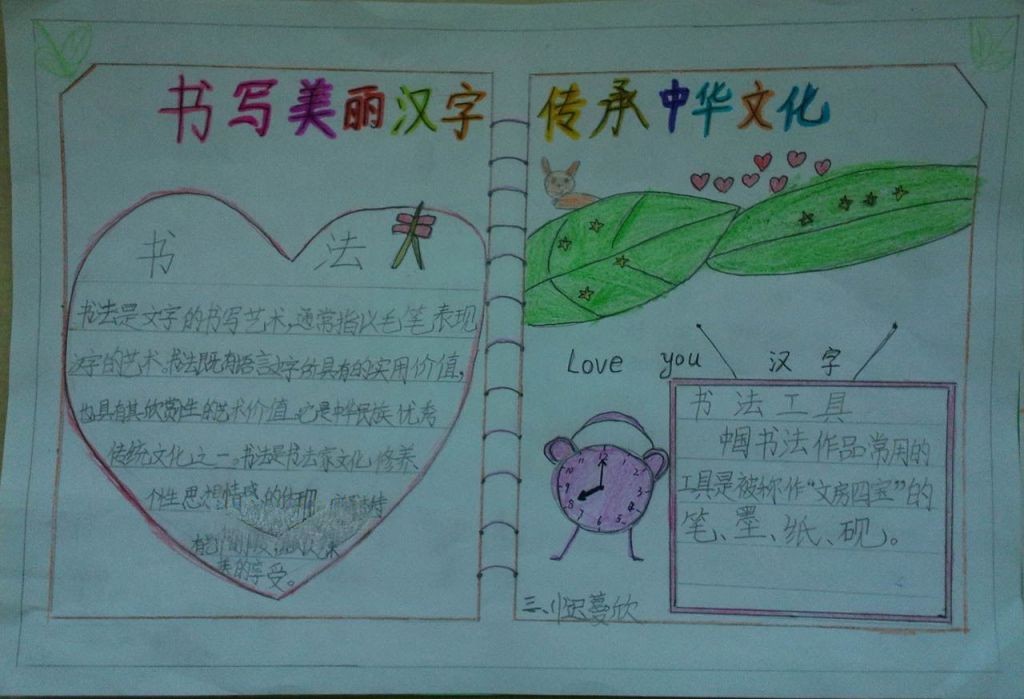 书写美丽汉字
书法
书法是文字的书写艺术,通常指以毛笔表现
汉字的艺术。书法既有语言文字所具有的实用价值,
也具有其欣赏性的艺术价值。它是中华民族优秀
传统文化之一。书法是书法家文化修养
个性思想情感的体现
美的享受。
传承中华文化
Love you 汉字
12
1
2
3
4
5
6
7
8
9
10
11
书法工具
中国书法作品常用的
工具是被称作“文房四宝”的
笔、墨、纸、砚。
三、蔓欣